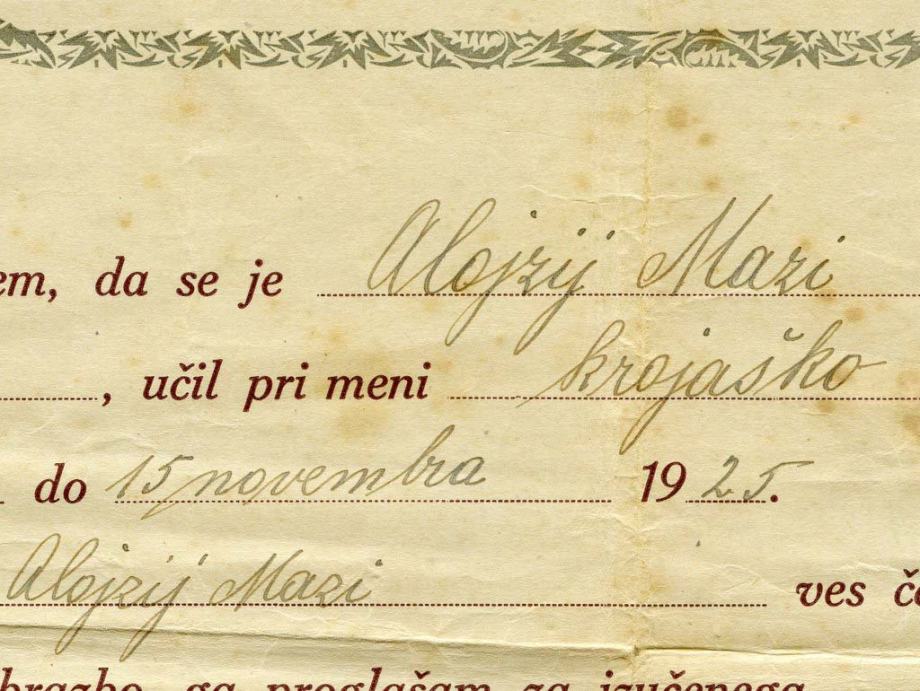 em, da se je Alojzij Mazi
, učil pri meni krojaško
do 15 novembra 1925.
Alojzij Mazi ves č
brazbo, ga proglašam za izučenega